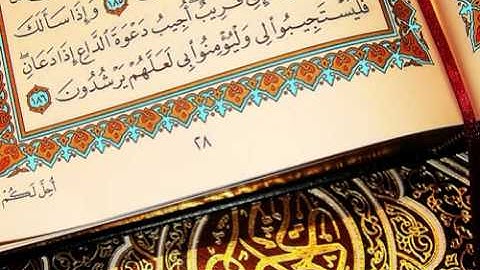 ١٨٥ وَإِذَا سَأَلَكَ
قَرِيبٌ أُجِيبُ دَعْوَةَ ٱلدَّاعِ إِذَا دَعَانِ ۖ
فَلْيَسْتَجِيبُوا۟ لِى وَلْيُؤْمِنُوا۟ بِى لَعَلَّهُمْ يَرْشُدُونَ ١٨٦
٢٨
أُحِلَّ لَكُمْ